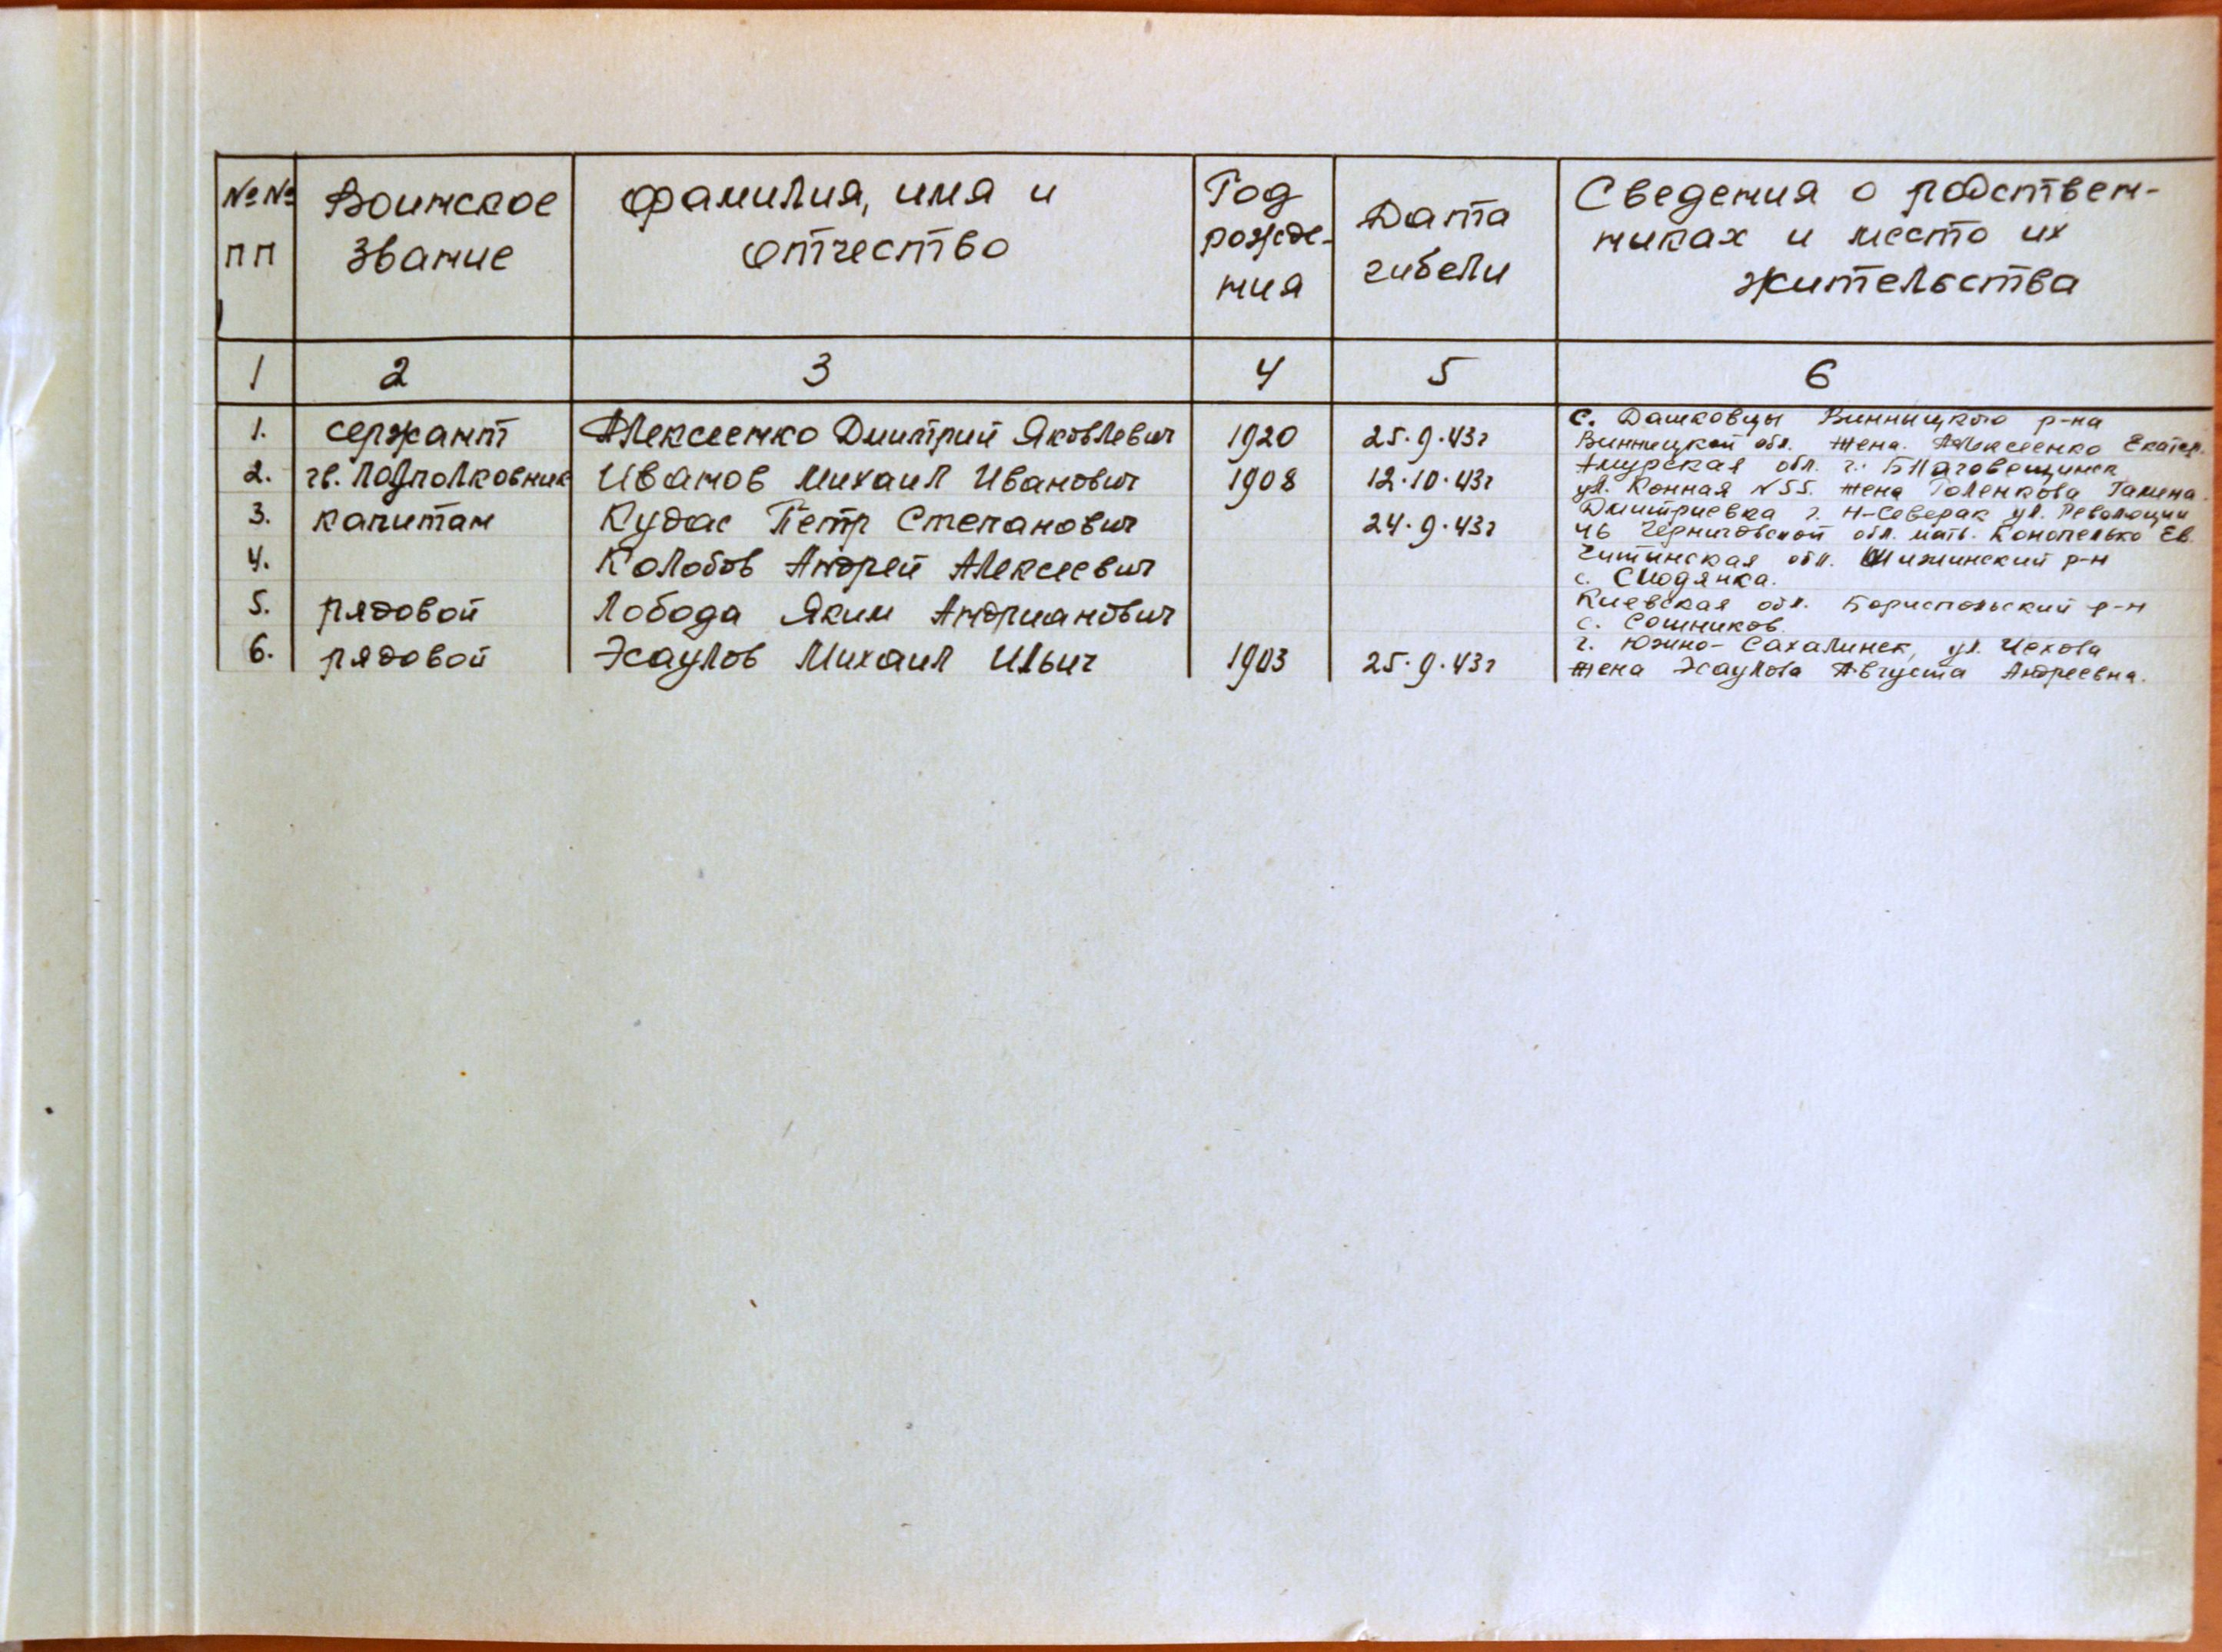 №№ пп
Воинское звание
Фамилия, имя и отчество
Год рожде-ния
Дата гибели
Сведения о родствен-
никах и место их
жительства
1 2 3 4 5 6
1. сержант Алексеенко Дмитрий Яковлевич 1920 25.9.43г с. Дашковцы Винницкого р-на
Винницкой обл. жена. Алексеенко Екатер.
2. гв. подполковник Иванов Михаил Иванович 1908 12.10.43г Амурская обл. г. Благовещинск
ул. Конная №55. жена Голенкова Галина.
3. капитан Кудас Петр Степанович 24.9.43г Дмитриевка г. Н-Северск ул. Революции
46 Черниговской обл. мать. Конопелько Ев.
4. Колобов Андрей Алексеевич Читинская обл. Шижинский р-н
с. Слюдянка.
5. рядовой Лобода Яким Андрианович Киевская обл. Бориспольский р-н
с. Сошников.
6. рядовой Эсаулов Михаил Ильич 1903 25.9.43г г. Южно-Сахалинск, ул. Чехова
жена Эсаулова Августа Андреевна.